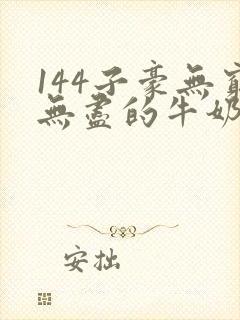 144子豪無窮
無盡的牛奶
安拙